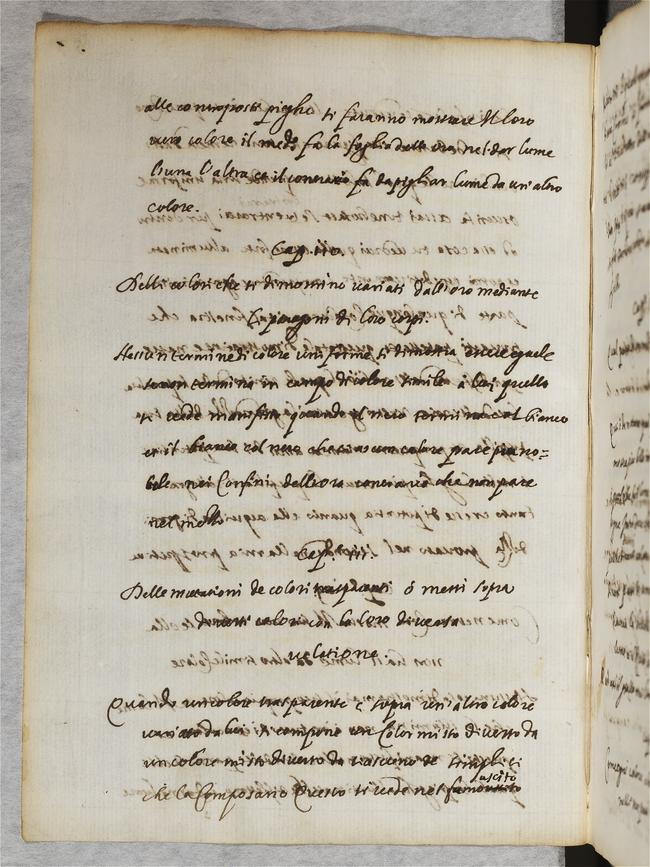 alle contraposte pieghe ti faranno mostrare il loro
vero colore il medo fa la foglia dell' oro nel dar lume
l'una l'altra et il contrario fa da pigliar lume da un altro
colore.
Cap. 110.
Delli colori che si dimostrino variati dall' loro mediante
li paragoni di loro corpi.
Nessun termine di colore uniforme si dimostra essere eguale
se non termina in campo di colore simile à lui, questo
si vede manifesto quando il nero termina col bianco
et il bianco col nero che ciascun colore pare piu no=
bile nei Confini
che non pare
nel mezzo
Cap. 111.
Delle mutationi de colori trasparenti ò messi sopra
diversi colori con la loro diversa
relatione
Quando un colore trasparente è sopra un' altro colore
variato da lui si compone un Color misto diverso da
un colore misto diverso da ciascuno de simplici
che lo Composano Questo si vede nel fumo uscito
uscito